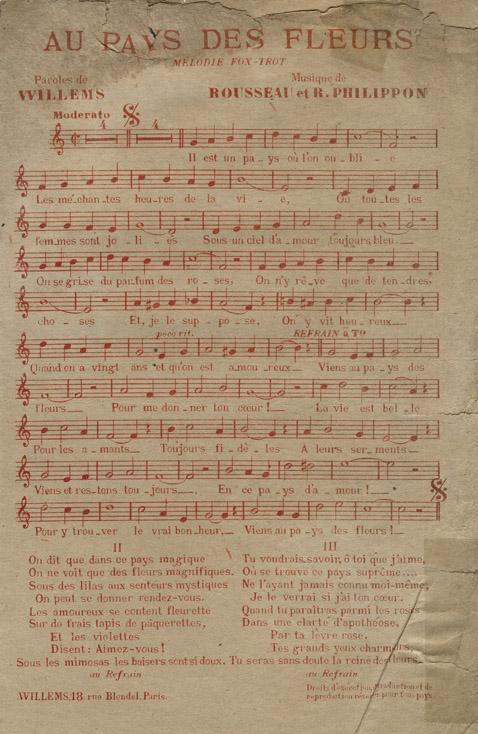 AU PAYS DES FLEURS
MÉLODIE FOX-TROT
Paroles de
WILLEMS
Musique de
ROUSSEAU et R. PHILIPPON
Moderato
4 4
Il est un pa_ys où l'on ou_bli_e
Les mé_chan_tes heu_res de la vi_e, Où tou_tes les
fem_mes sont jo_li_es Sous un ciel d'a_mour toujours bleu
On se grise du par_fum des ro_ses, On n'y rê_ve que de ten_dres
cho_ses Et, je le sup_po_se, On y vit heu_reux
poco rit. REFRAIN a To
Quand on a vingt ans et qu'on est a_mou_reux Viens au pa_ys des
fleurs Pour me don_ner ton cœur! La vie est bel_le
Pour les a_mants Toujours fi_dè_les A leurs ser_ments
Viens et res_tons tou_jours En ce pa_ys d'a_mour!
Pour y trou_ver le vrai bon_heur, Viens au pa_ys des fleurs!
II
On dit que dans ce pays magique
On ne voit que des fleurs magnifiques.
Sous des lilas aux senteurs mystiques
On peut se donner rendez-vous.
Les amoureux se content fleurette
Sur de frais tapis de pâquerettes,
Et les violettes
Disent: Aimez-vous!
Sous les mimosas les baisers sont si doux.
au Refrain
III
Tu voudrais savoir, ô toi que j'aime,
Où se trouve ce pays suprême....
Ne l'ayant jamais connu moi-même,
Je le verrai si j'ai ton cœur.
Quand tu paraîtras parmi les roses
Dans une clarté d'apothéose,
Par ta lèvre rose,
Tes grands yeux charmeurs,
Tu seras sans doute la reine des fleurs.
au Refrain
WILLEMS, 18, rue Blondel, Paris.
Droits d'exécution, traduction et de
reproduction réservés pour tous pays.